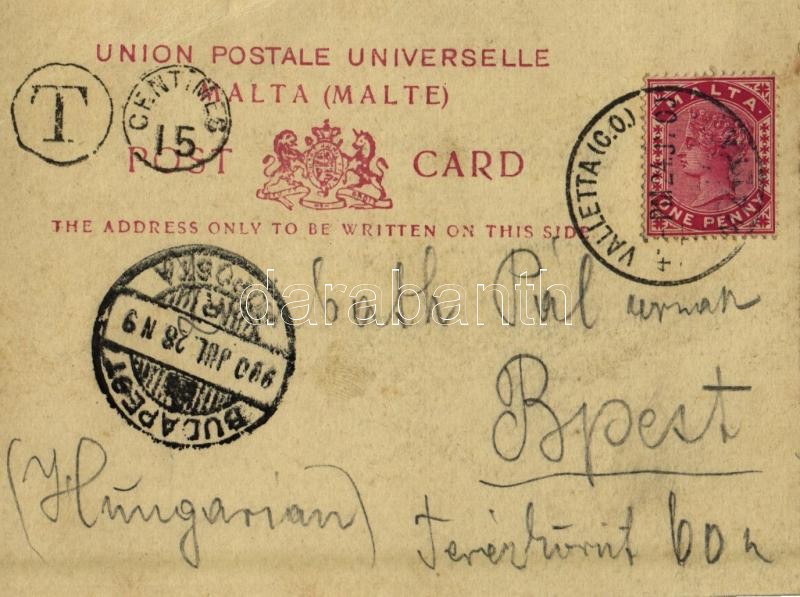 UNION POSTALE UNIVERSELLE
MALTA (MALTE)
T
CENTIMES
15
POST CARD
THE ADDRESS ONLY TO BE WRITTEN ON THIS SIDE
MALTA.
ONE PENNY
VALLETTA (C.O.)
Pál urnak
darabanth
BUDAPEST
900 JUL 28 N9
Bpest
(Hungarian)
Terézkörút 60